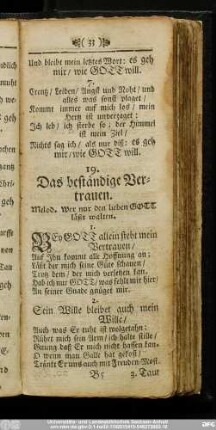 ( 31 )
Und bleibt mein letztes Wort: es geh
mir/ wie GOTT will.
7.
Creutz/ Leiden/ Angst und Noht/ und
alles was sonst plaget/
Kommt immer auf mich los/ mein
Hertz ist unverzaget:
Ich leb/ ich sterbe so: der Himmel
ist mein Ziel/
Nichts sag ich/ als nur diß: es geh
mir/ wie GOTT will.
19.
Das beständige Ver-
trauen.
Melod. Wer nur den lieben GOTT
läßt walten.
1.
BEy GOTT allein steht mein
Vertrauen/
Auf Ihn kommt alle Hoffnung an:
Läst der mich seine Güte schauen/
Trotz dem/ der mich verletzen kan.
Hab ich nur GOTT/ was fehlt mir hier/
An seiner Gnade gnüget mir.
2.
Sein Wille bleibet auch mein
Wille/
Auch was Er thut ist wolgethan:
Rührt mich sein Arm/ ich halte stille/
Genung daß Er mich nicht hassen kan.
O wenn man Galle hat gekost/
Tränkt Er uns auch mit Freuden-Most.
3. Traut